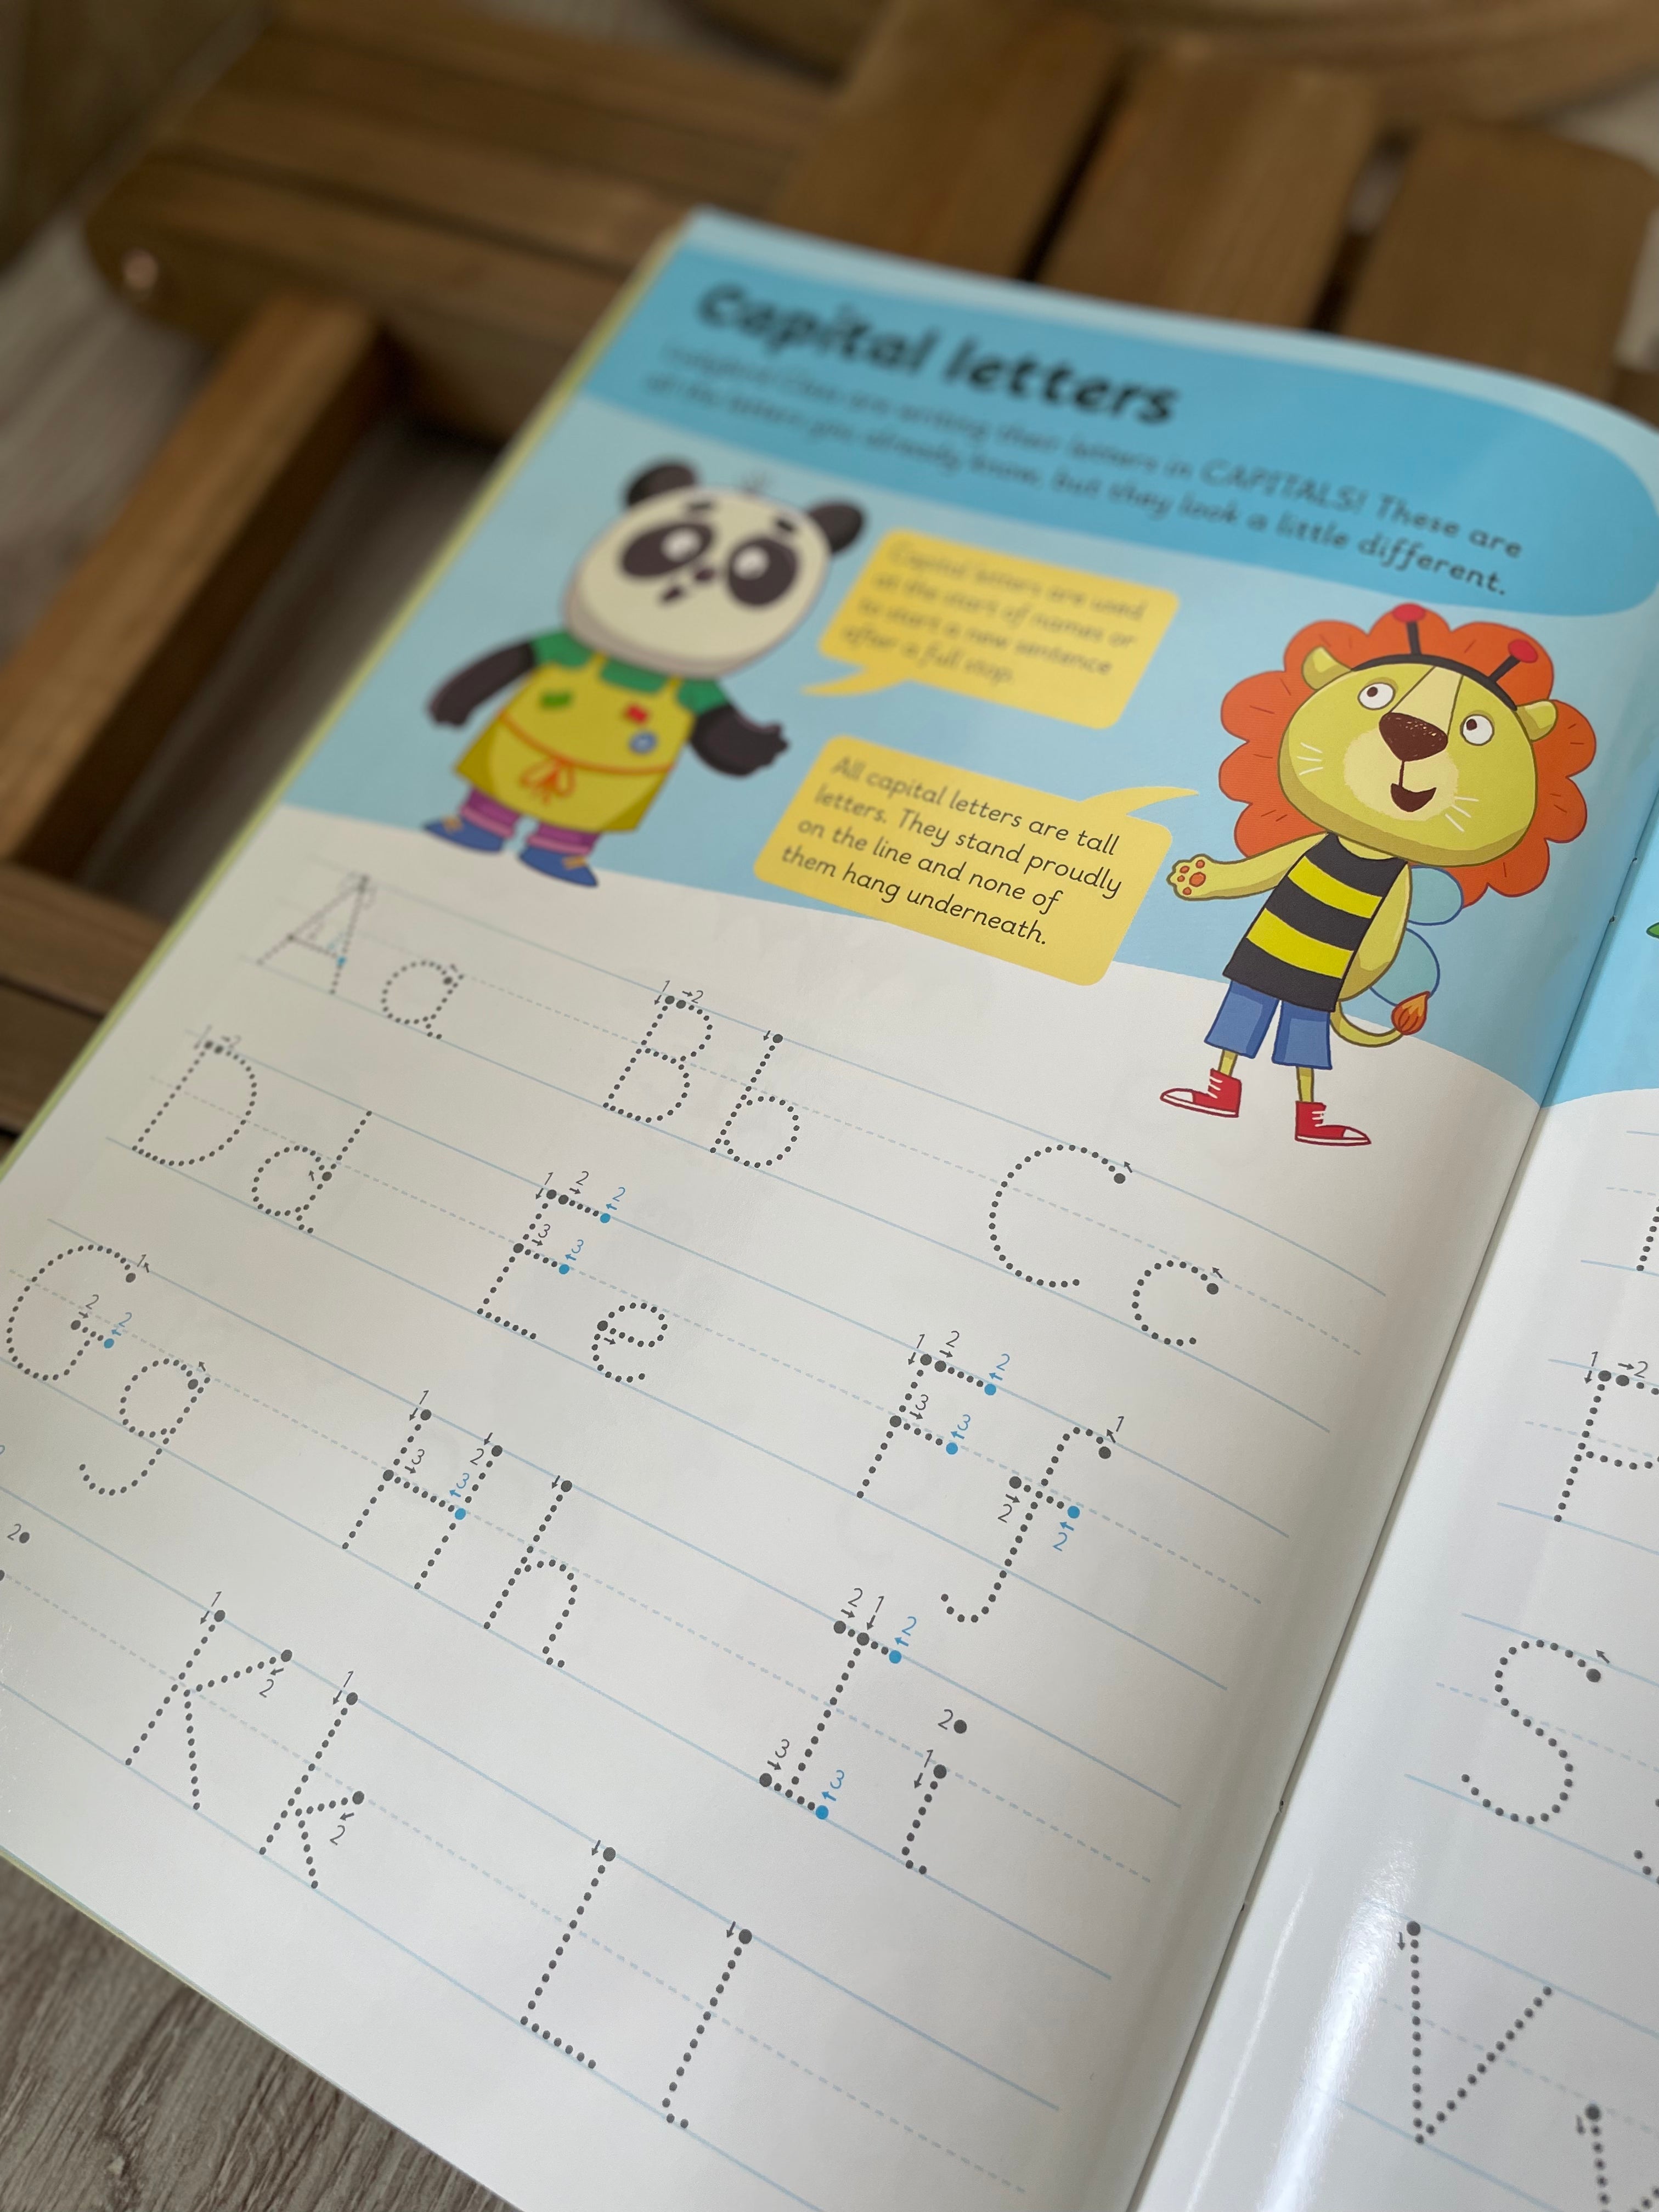 Capital letters
Class are writing their letters in CAPITALS! These are
all the letters you already know, but they look a little different.
Capital letters are used
at the start of names or
to start a new sentence
after a full stop.
All capital letters are tall
letters. They stand proudly
on the line and none of
them hang underneath.
A a B b C c
D d E e F f
G g H h I i
K k L l
P
S
V